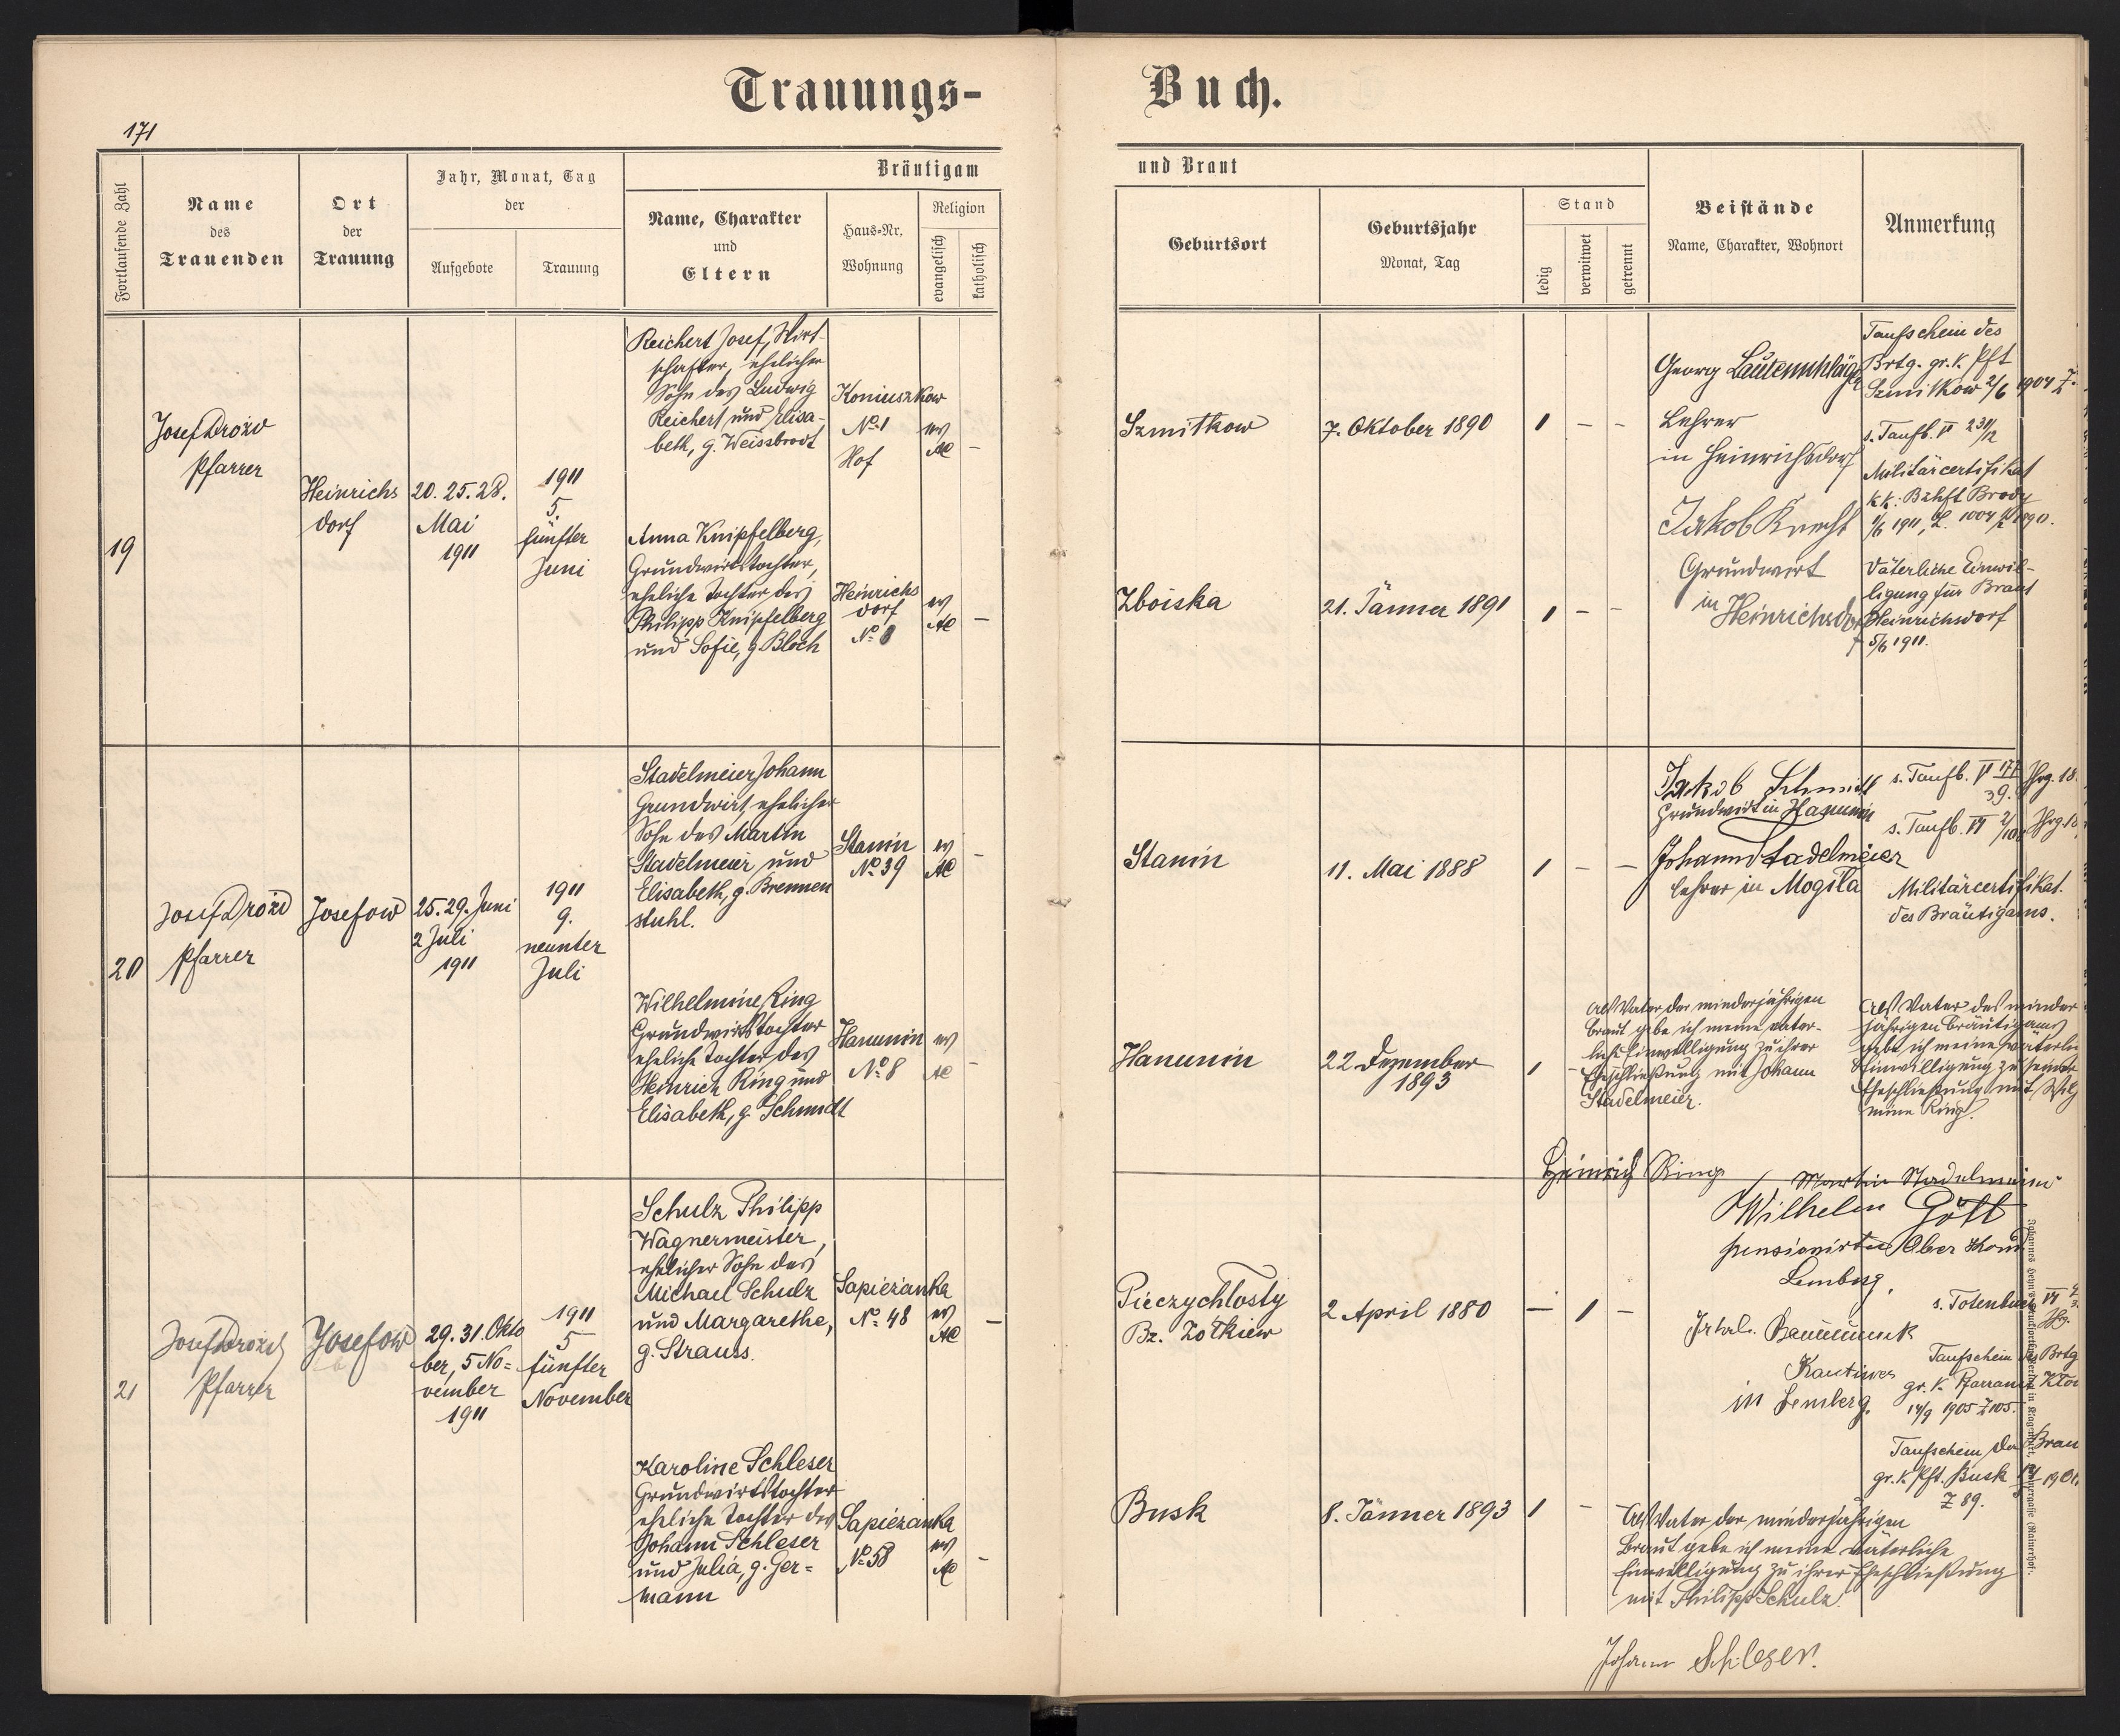 Trauungs-
Buch.
171
Fortlaufende Zahl
Name
des
Trauenden
Ort
der
Trauung
Jahr, Monat, Tag
der
Aufgebote
Trauung
Bräutigam
Name, Charakter
und
Eltern
Haus-Nr.
Wohnung
Religion
evangelisch
katholisch
und Braut
Geburtsort
Geburtsjahr
Monat, Tag
Stand
ledig
verwitwet
getrennt
Beistände
Name, Charakter, Wohnort
Anmerkung
19
Josef Drozd
Pfarrer
Heinrichs
dorf
20. 25. 28.
Mai
1911
1911
5.
fünfter
Juni
Reichert Josef, Wirt-
schafter, ehelicher
Sohn des Ludwig
Reichert und Elisa-
beth, g. Weissbrodt
Koniuszkow
No 1
Hof
ev
AC
-
Anna Knipfelberg,
Grundwirtstochter,
eheliche Tochter des
Philipp Knipfelberg
und Sofie, g. Bloch
Heinrichs
dorf
No 8
ev
AC
-
Szmitkow
7. Oktober 1890
1 - -
Zboiska
21. Jänner 1891
1 - -
Georg Lautenschläger
Lehrer
in Heinrichsdorf
Jakob Knecht
Grundwirt
in Heinrichsdorf
Taufschein des
Brtg. gr. k. Pft
Szmitkow 2/6 1904
s. Taufb. VI
Militärcertifikat
k.k. Bzhft Brody
1/6 1911, Z.
Väterliche Einwil-
ligung für Braut
Heinrichsdorf
5/6 1911.
20
Josef Drozd
Pfarrer
Josefow
25. 29. Juni
2 Juli
1911
1911
9.
neunter
Juli
Stadelmeier Johann
Grundwirt, ehelicher
Sohn des Martin
Stadelmeier und
Elisabeth, g. Brennen
stuhl.
Stanin
No 39
ev
AC
-
Wilhelmine Ring
Grundwirtstochter
eheliche Tochter des
Heinrich Ring und
Elisabeth, g. Schmidt
Hanunin
No 8
ev
AC
-
Stanin
11. Mai 1888
1 - -
Hanunin
22 Dezember
1893
1 -
Jakob Schmidt
Grundwirt in Hanunin
Johann Stadelmeier
Lehrer in Mogila
s. Taufb. VI 177/39. Jhrg. 18
s. Taufb. VI Jhrg. 18
Militärcertifikat
des Bräutigams.
Als Vater der minderjährigen
Braut gebe ich meine väter-
liche Einwilligung zu ihrer
Eheschließung mit Johann
Stadelmeier.
Heinrich Ring
Als Vater des minder
jährigen Bräutigams
gebe ich meine väterli
Einwilligung zu seiner
Eheschließung mit Wilh
mine Ring.
Martin Stadelmeier
21
Josef Drozd
Pfarrer
Josefow
29. 31. Okto
ber, 5 No=
vember
1911
1911
5
fünfter
November
Schulz Philipp
Wagnermeister,
ehelicher Sohn des
Michael Schulz
und Margarethe,
g. Strauss.
Sapiezanka
No 48
ev
AC
-
Karoline Schleser
Grundwirtstochter
eheliche Tochter des
Johann Schleser
und Julia, g. Ger=
mann
Sapiezanka
No 58
ev
AC
-
Pieczychlosty
Bz. Zolkiew
2 April 1880
- 1 -
Busk
8. Jänner 1893
1 -
Wilhelm Gött
pensionirter Ober Kond
Lemberg.
in Lemberg.
s. Totenbuch VI
Taufschein des Brtg
gr. k. Pfarramt
14/9 1905 Z 105.
Taufschein der Brau
gr. k. Pft. Busk
Z 89.
Als Vater der minderjährigen
Braut gebe ich meine väterliche
Einwilligung zu ihrer Eheschließung
mit Philipp Schulz.
Johann Schleser.